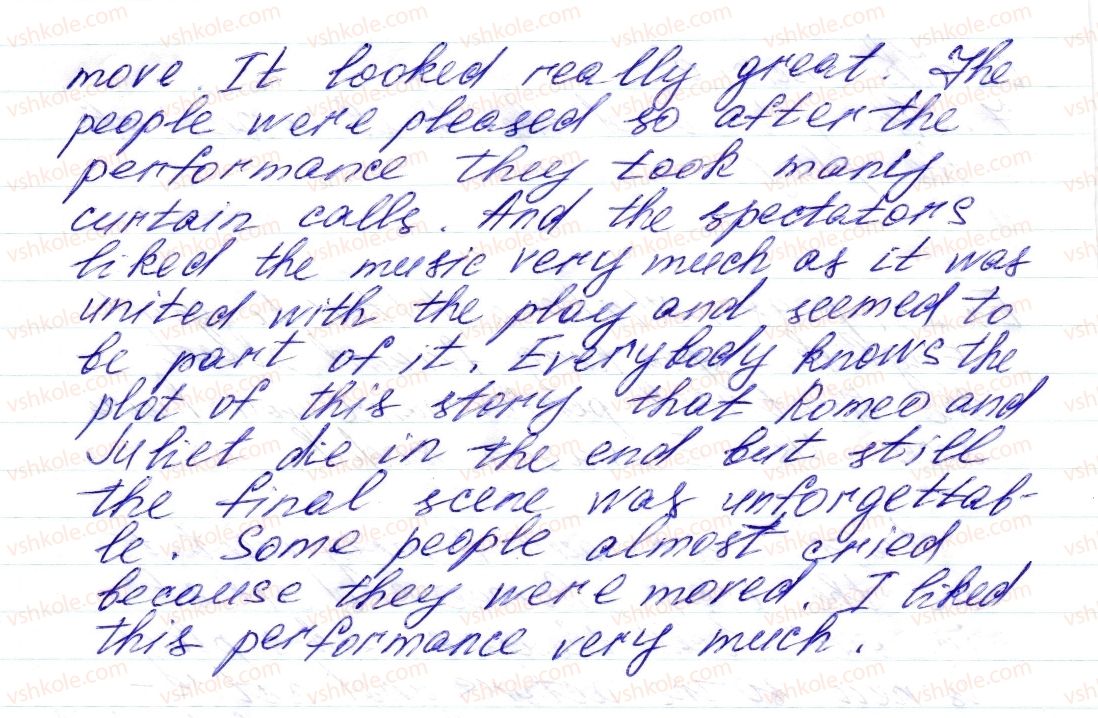 move. It looked really great. The
people were pleased so after the
performance they took many
curtain calls. And the spectators
liked the music very much as it was
united with the play and seemed to
be part of it. Everybody knows the
plot of this story that Romeo and
Juliet die in the end but still
the final scene was unforgettab-
le. Some people almost cried
because they were moved. I liked
this performance very much.
vshkole.com